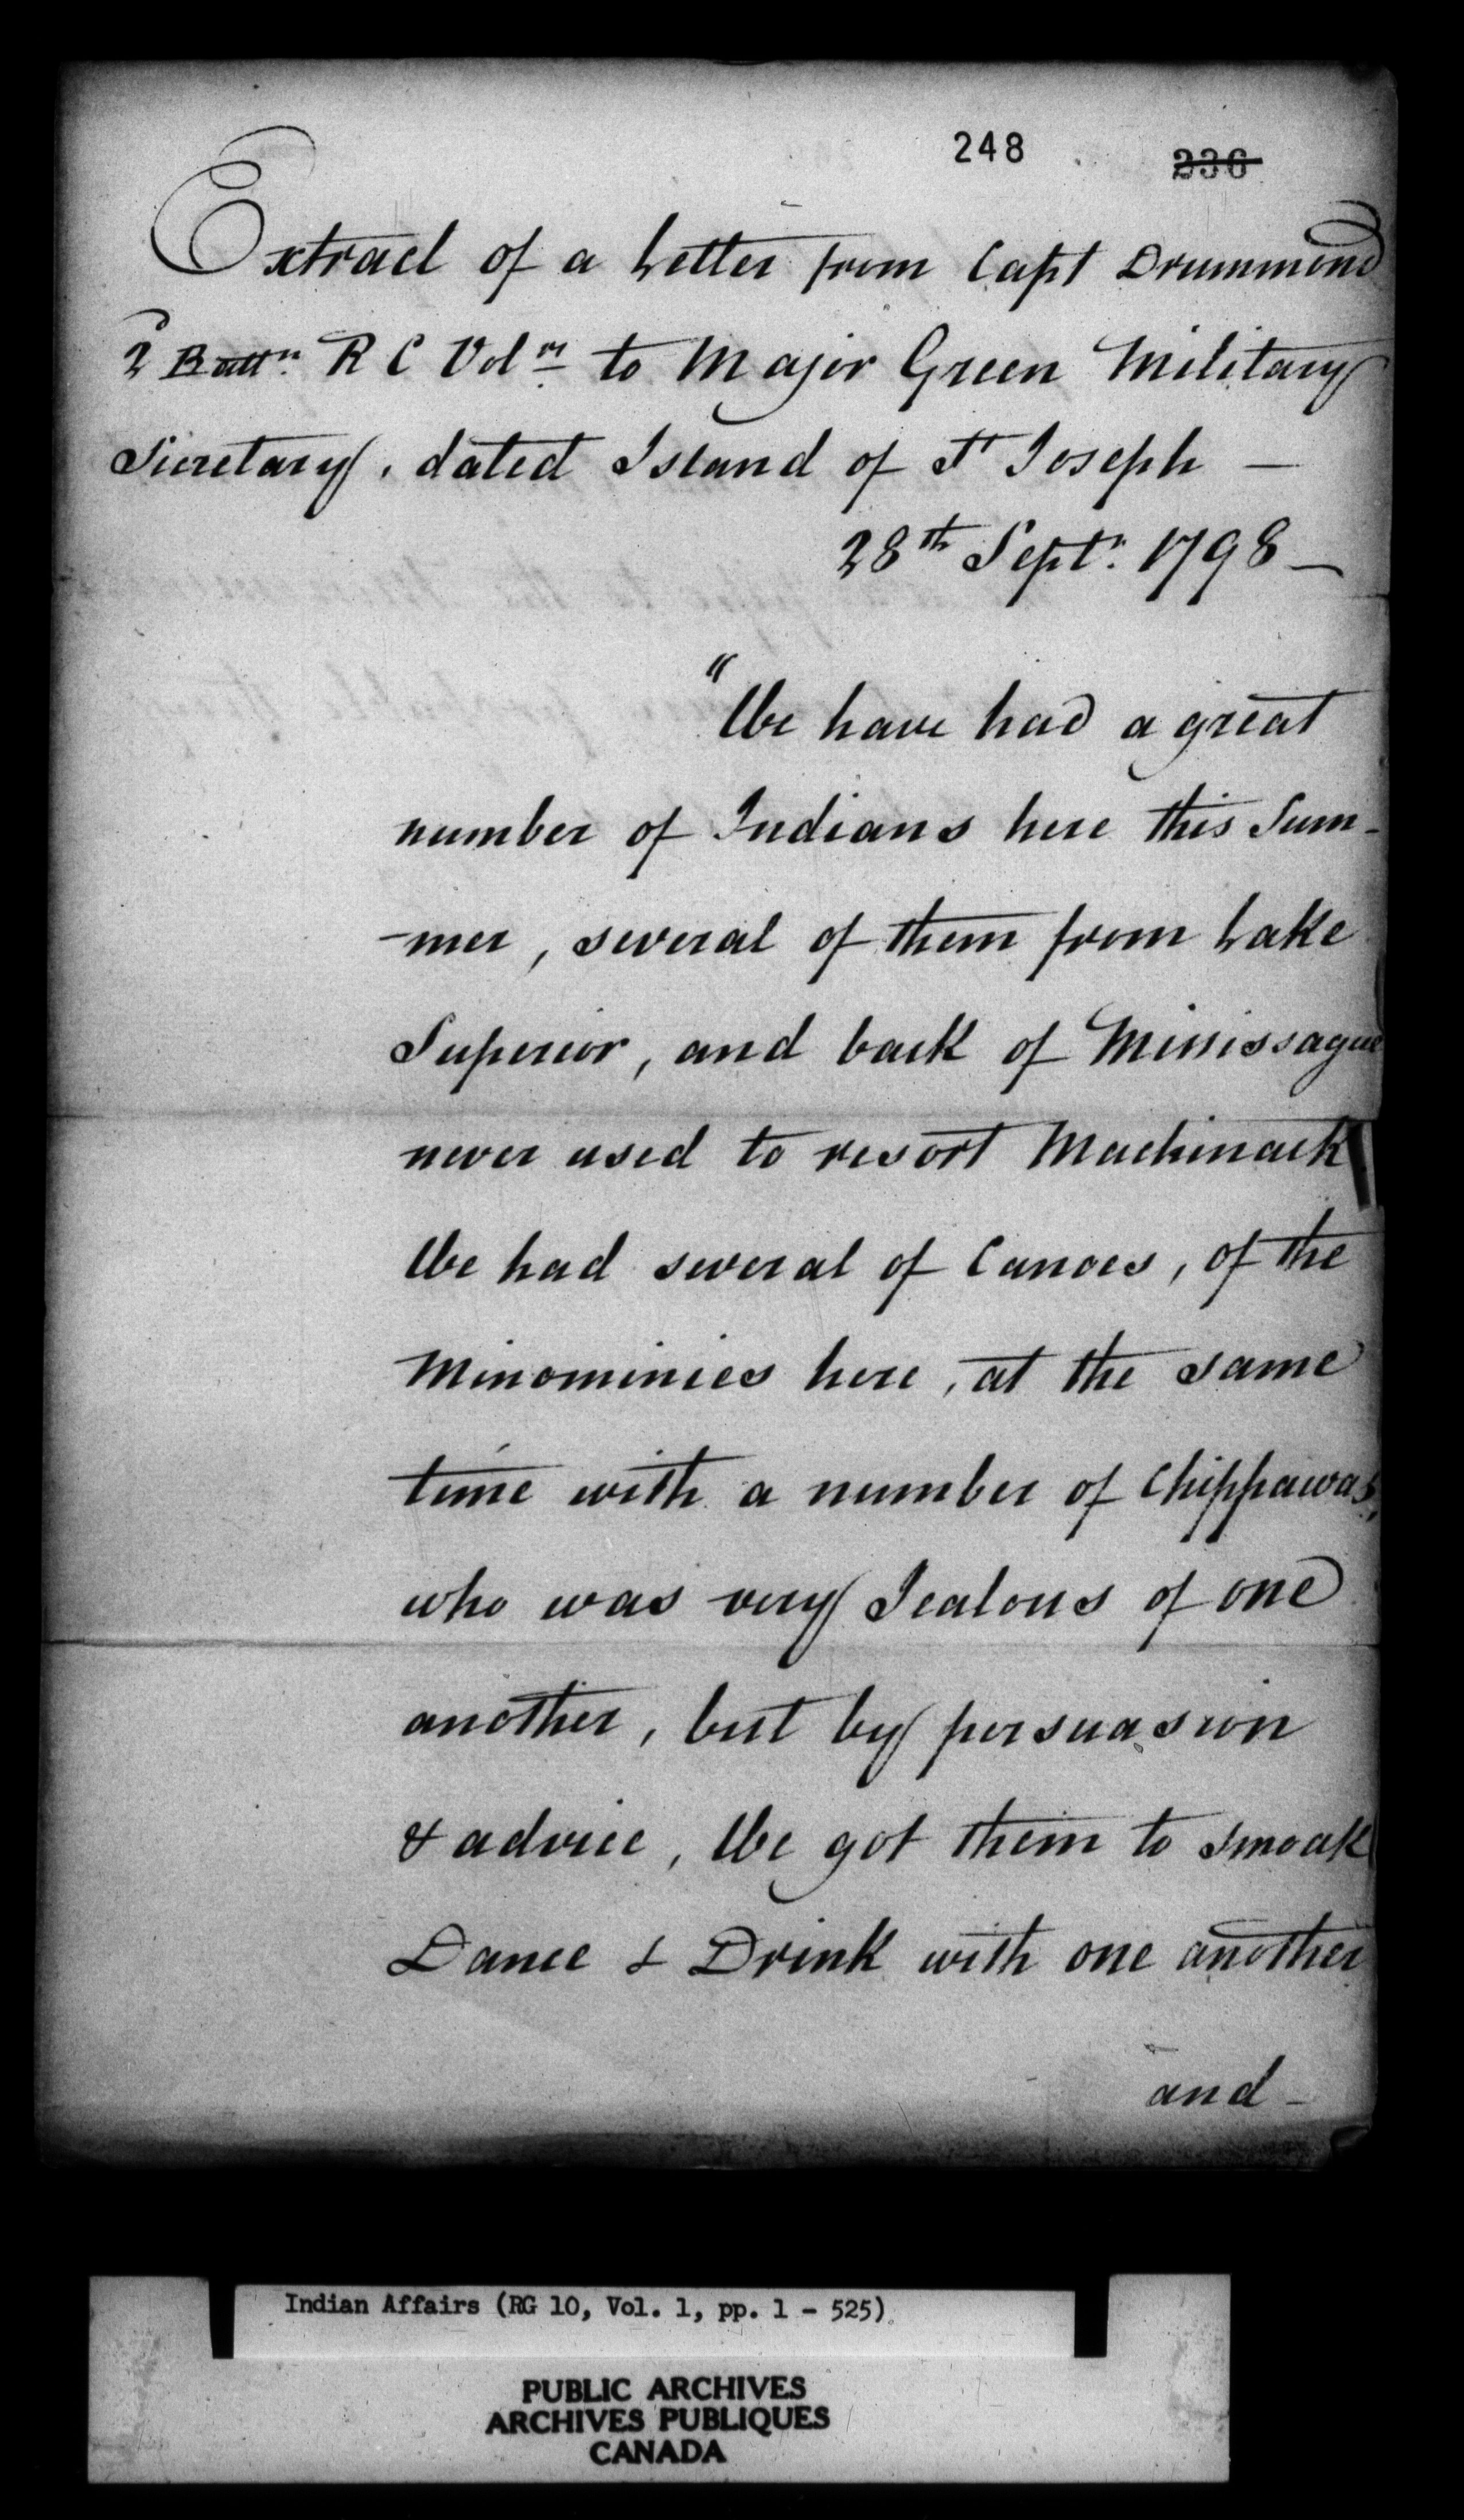 248 236
Extract of a Letter from Capt Drummond
2 Battn. R C Voln to Major Green Military
Secretary, dated Island of St Joseph —
28th Septr. 1798 —
"We have had a great
number of Indians here this Sum-
-mer, several of them from Lake
Superior, and back of Missisague
never used to resort Mackinack
We had several of Canoes, of the
Minominies here, at the same
time with a number of Chippawas,
who was very Jealous of one
another, but by persuasion
& advice, We got them to smoak
Dance & Drink with one another
and —
Indian Affairs (RG 10, Vol. 1, pp. 1 - 525)
PUBLIC ARCHIVES
ARCHIVES PUBLIQUES
CANADA